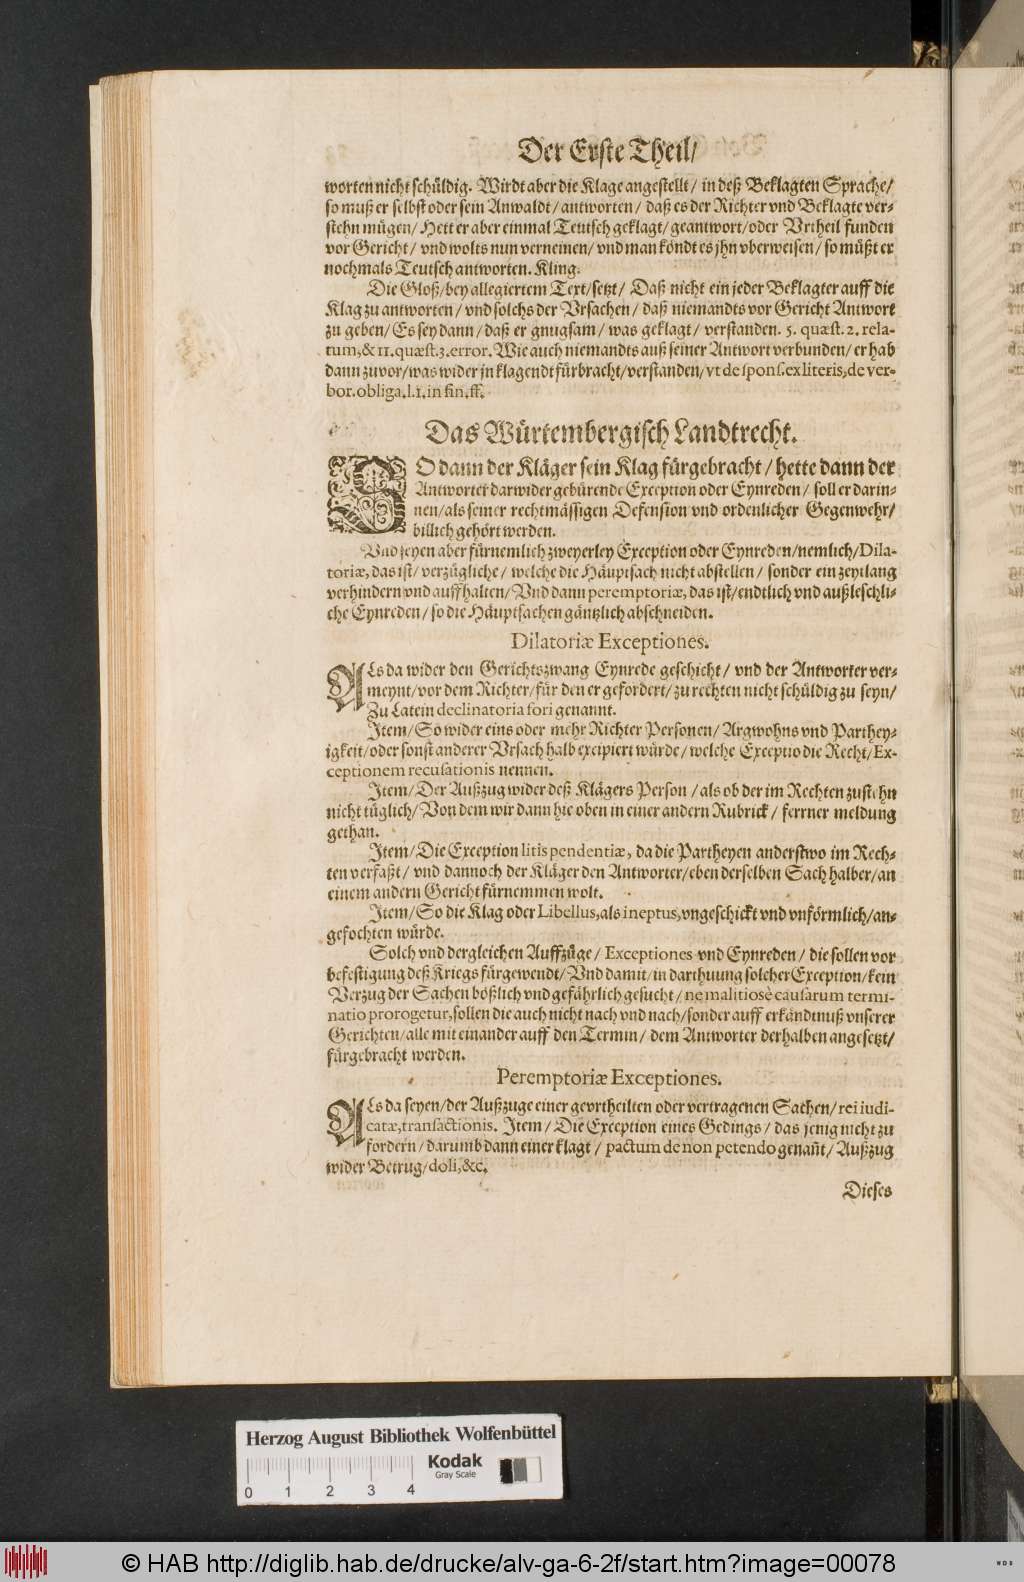 Der Erste Theil/
worten nicht schüldig. Wirdt aber die Klage angestellt / in deß Beklagten Sprache/
so muß er selbst oder sein Anwaldt / antworten / daß es der Richter vnd Beklagte ver-
stehn mügen / Hett er aber einmal Teutsch geklagt / geantwort / oder Vrtheil funden
vor Gericht / vnd wolts nun verneinen / vnd man köndt es jhn vberweisen / so müßt er
nochmals Teutsch antworten. Kling.
Die Gloß / bey allegiertem Text / setzt / Daß nicht ein jeder Beklagter auff die
Klag zu antworten / vnd solchs der Vrsachen / daß niemandts vor Gericht Antwort
zu geben / Es sey dann / daß er gnugsam / was geklagt / verstanden. 5. quæst. 2. rela-
tum, & 11. quæst. 3. error. Wie auch niemandts auß seiner Antwort verbunden / er hab
dann zuvor / was wider jn klagendt fürbracht / verstanden / vt de spons. ex literis, de ver-
bor. obliga. l. 1. in fin. ff.
Das Würtembergisch Landtrecht.
SO dann der Kläger sein Klag fürgebracht / hette dann der
Antworter darwider gebürende Exception oder Eynreden / soll er darin-
nen / als seiner rechtmässigen Defension vnd ordenlicher Gegenwehr/
billich gehört werden.
Vnd seyen aber fürnemlich zweyerley Exception oder Eynreden / nemlich / Dila-
toriæ, das ist / verzügliche / welche die Häuptsach nicht abstellen / sonder ein zeytlang
verhindern vnd auffhalten / Vnd dann peremptoriæ, das ist / endtlich vnd außleschli-
che Eynreden / so die Häuptsachen gäntzlich abschneiden.
Dilatoriæ Exceptiones.
ALs da wider den Gerichtszwang Eynrede geschicht / vnd der Antworter ver-
meynt / vor dem Richter / für den er gefordert / zu rechten nicht schüldig zu seyn/
Zu Latein declinatoria fori genannt.
Item / So wider eins oder mehr Richter Personen / Argwohns vnd Parthey-
igkeit / oder sonst anderer Vrsach halb excipiert würde / welche Exceptio die Recht / Ex-
ceptionem recusationis nennen.
Item / Der Außzug wider deß Klägers Person / als ob der im Rechten zustehn
nicht tüglich / Von dem wir dann hie oben in einer andern Rubrick / ferrner meldung
gethan.
Item / Die Exception litis pendentiæ, da die Partheyen anderstwo im Rech-
ten verfaßt / vnd dannoch der Kläger den Antworter / eben derselben Sach halber / an
einem andern Gericht fürnemmen wolt.
Item / So die Klag oder Libellus, als ineptus, vngeschickt vnd vnförmlich / an-
gefochten würde.
Solch vnd dergleichen Auffzüge / Exceptiones vnd Eynreden / die sollen vor
befestigung deß Kriegs fürgewendt / Vnd damit / in darthuung solcher Exception / kein
Verzug der Sachen bößlich vnd gefährlich gesucht / ne malitiosè causarum termi-
natio prorogetur, sollen die auch nicht nach vnd nach / sonder auff erkändtnuß vnserer
Gerichten / alle mit einander auff den Termin / dem Antworter derhalben angesetzt/
fürgebracht werden.
Peremptoriæ Exceptiones.
ALs da seyen / der Außzuge einer gevrtheilten oder vertragenen Sachen / rei iudi-
catæ, transactionis. Item / Die Exception eines Gedings / das jenig nicht zu
fordern / darumb dann einer klagt / pactum de non petendo genañt / Außzug
wider Betrug / doli, &c.
Dieses
Herzog August Bibliothek Wolfenbüttel
Kodak
Gray Scale
0 1 2 3 4
© HAB http://diglib.hab.de/drucke/alv-ga-6-2f/start.htm?image=00078